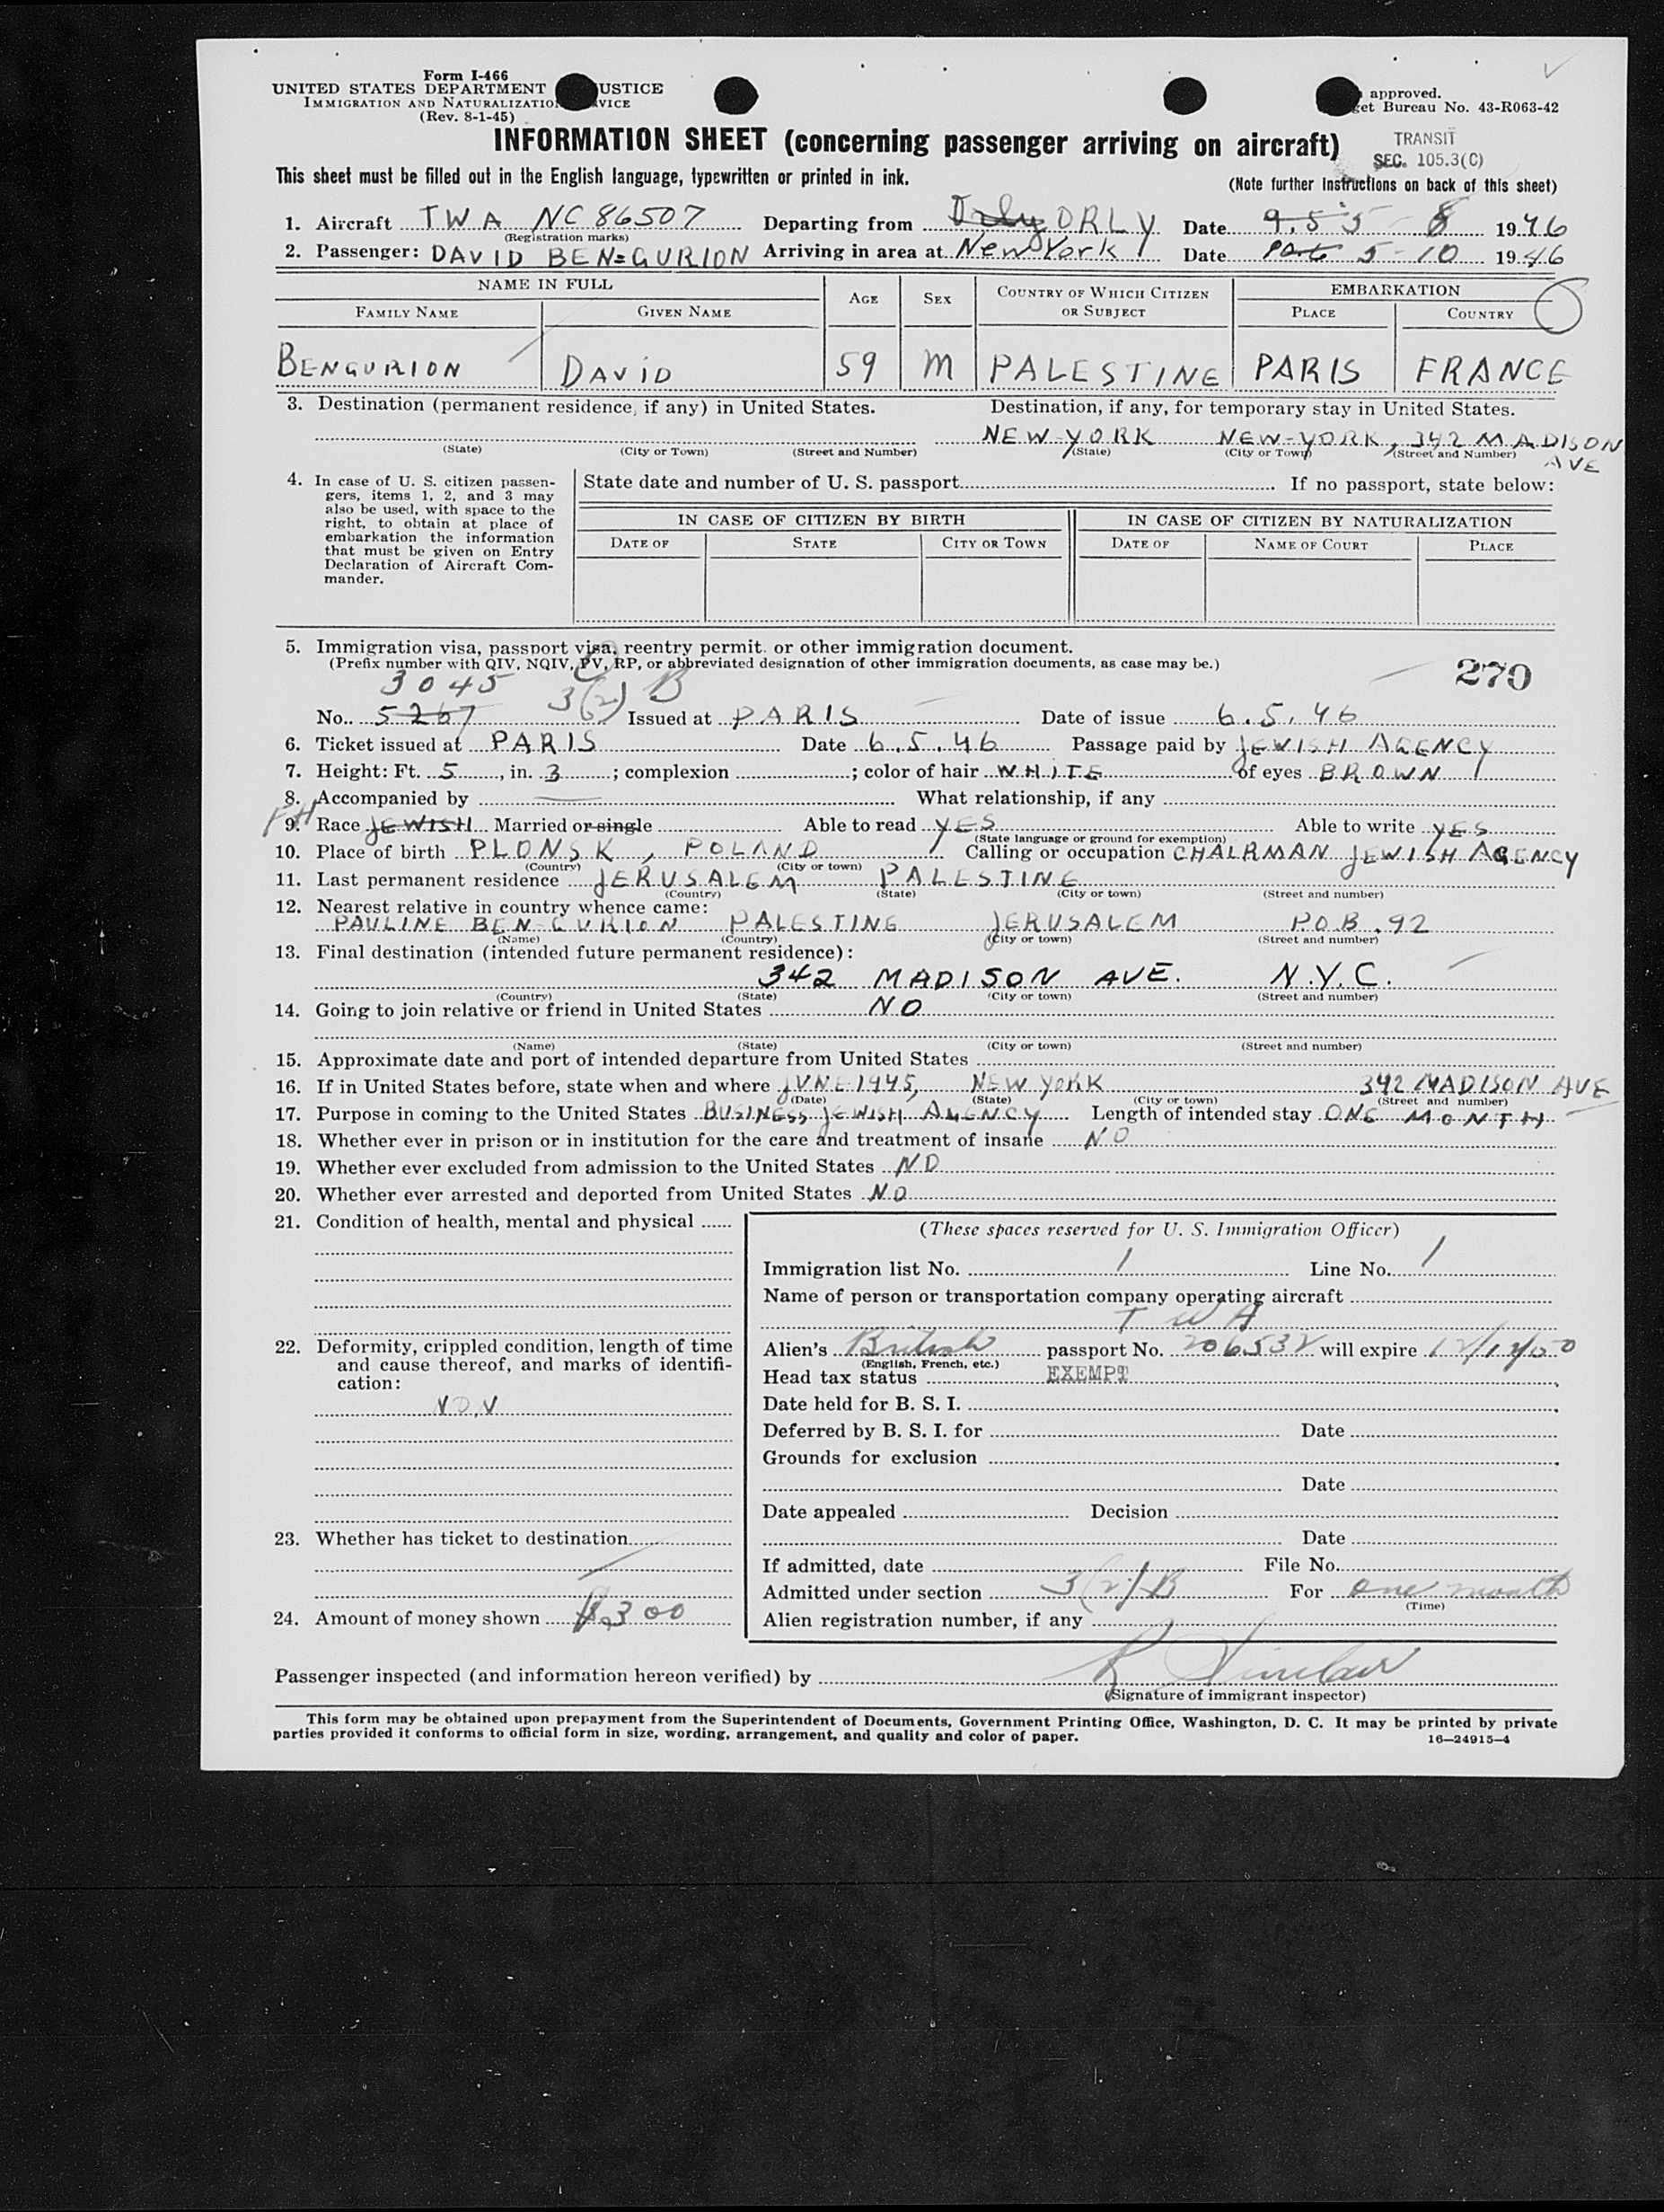 Form I-466
UNITED STATES DEPARTMENT USTICE
IMMIGRATION AND NATURALIZATIO VICE
(Rev. 8-1-45)
approved.
et Bureau No. 43-R063-42
INFORMATION SHEET (concerning passenger arriving on aircraft)
TRANSIT
SEC. 105.3(C)
This sheet must be filled out in the English language, typewritten or printed in ink.
(Note further instructions on back of this sheet)
1. Aircraft TWA NC 86507 Departing from Orly ORLY Date 9.5 5 - 8 1946
(Registration marks)
2. Passenger: DAVID BEN=GURION Arriving in area at New York Date 5-10 1946
NAME IN FULL AGE SEX COUNTRY OF WHICH CITIZEN OR SUBJECT EMBARKATION
FAMILY NAME GIVEN NAME PLACE COUNTRY
BENGURION DAVID 59 M PALESTINE PARIS FRANCE
3. Destination (permanent residence, if any) in United States. Destination, if any, for temporary stay in United States.
NEW-YORK NEW-YORK, 342 MADISON AVE
(State) (City or Town) (Street and Number) (State) (City or Town) (Street and Number)
4. In case of U. S. citizen passengers, items 1, 2, and 3 may also be used, with space to the right, to obtain at place of embarkation the information that must be given on Entry Declaration of Aircraft Commander.
State date and number of U. S. passport If no passport, state below:
IN CASE OF CITIZEN BY BIRTH IN CASE OF CITIZEN BY NATURALIZATION
DATE OF STATE CITY OR TOWN DATE OF NAME OF COURT PLACE
5. Immigration visa, passport visa, reentry permit. or other immigration document.
(Prefix number with QIV, NQIV, PV, RP, or abbreviated designation of other immigration documents, as case may be.)
270
3045 3(2) B
No. 5267 Issued at PARIS Date of issue 6.5.46
6. Ticket issued at PARIS Date 6.5.46 Passage paid by JEWISH AGENCY
7. Height: Ft. 5, in. 3; complexion ; color of hair WHITE of eyes BROWN
8. Accompanied by What relationship, if any
9. Race JEWISH Married or single Able to read YES Able to write YES
(State language or ground for exemption)
10. Place of birth PLONSK, POLAND Calling or occupation CHAIRMAN JEWISH AGENCY
(Country) (City or town)
11. Last permanent residence JERUSALEM PALESTINE
(Country) (State) (City or town) (Street and number)
12. Nearest relative in country whence came:
PAULINE BEN-GURION PALESTINE JERUSALEM P.O.B. 92
(Name) (Country) (City or town) (Street and number)
13. Final destination (intended future permanent residence):
342 MADISON AVE. N.Y.C.
(Country) (State) (City or town) (Street and number)
14. Going to join relative or friend in United States NO
(Name) (State) (City or town) (Street and number)
15. Approximate date and port of intended departure from United States
16. If in United States before, state when and where JUNE 1945, NEW YORK 342 MADISON AVE
(Date) (State) (City or town) (Street and number)
17. Purpose in coming to the United States BUSINESS JEWISH AGENCY Length of intended stay ONE MONTH
18. Whether ever in prison or in institution for the care and treatment of insane NO
19. Whether ever excluded from admission to the United States NO
20. Whether ever arrested and deported from United States NO
21. Condition of health, mental and physical
22. Deformity, crippled condition, length of time and cause thereof, and marks of identification:
NON
23. Whether has ticket to destination
24. Amount of money shown $300
(These spaces reserved for U. S. Immigration Officer)
Immigration list No. 1 Line No. 1
Name of person or transportation company operating aircraft
TWA
Alien's British passport No. 206532 will expire
(English, French, etc.)
Head tax status EXEMPT
Date held for B. S. I.
Deferred by B. S. I. for Date
Grounds for exclusion
Date
Date appealed Decision
Date
If admitted, date File No.
Admitted under section 3(2)B For one month
(Time)
Alien registration number, if any
Passenger inspected (and information hereon verified) by
(Signature of immigrant inspector)
This form may be obtained upon prepayment from the Superintendent of Documents, Government Printing Office, Washington, D. C. It may be printed by private
parties provided it conforms to official form in size, wording, arrangement, and quality and color of paper.
16—24915-4